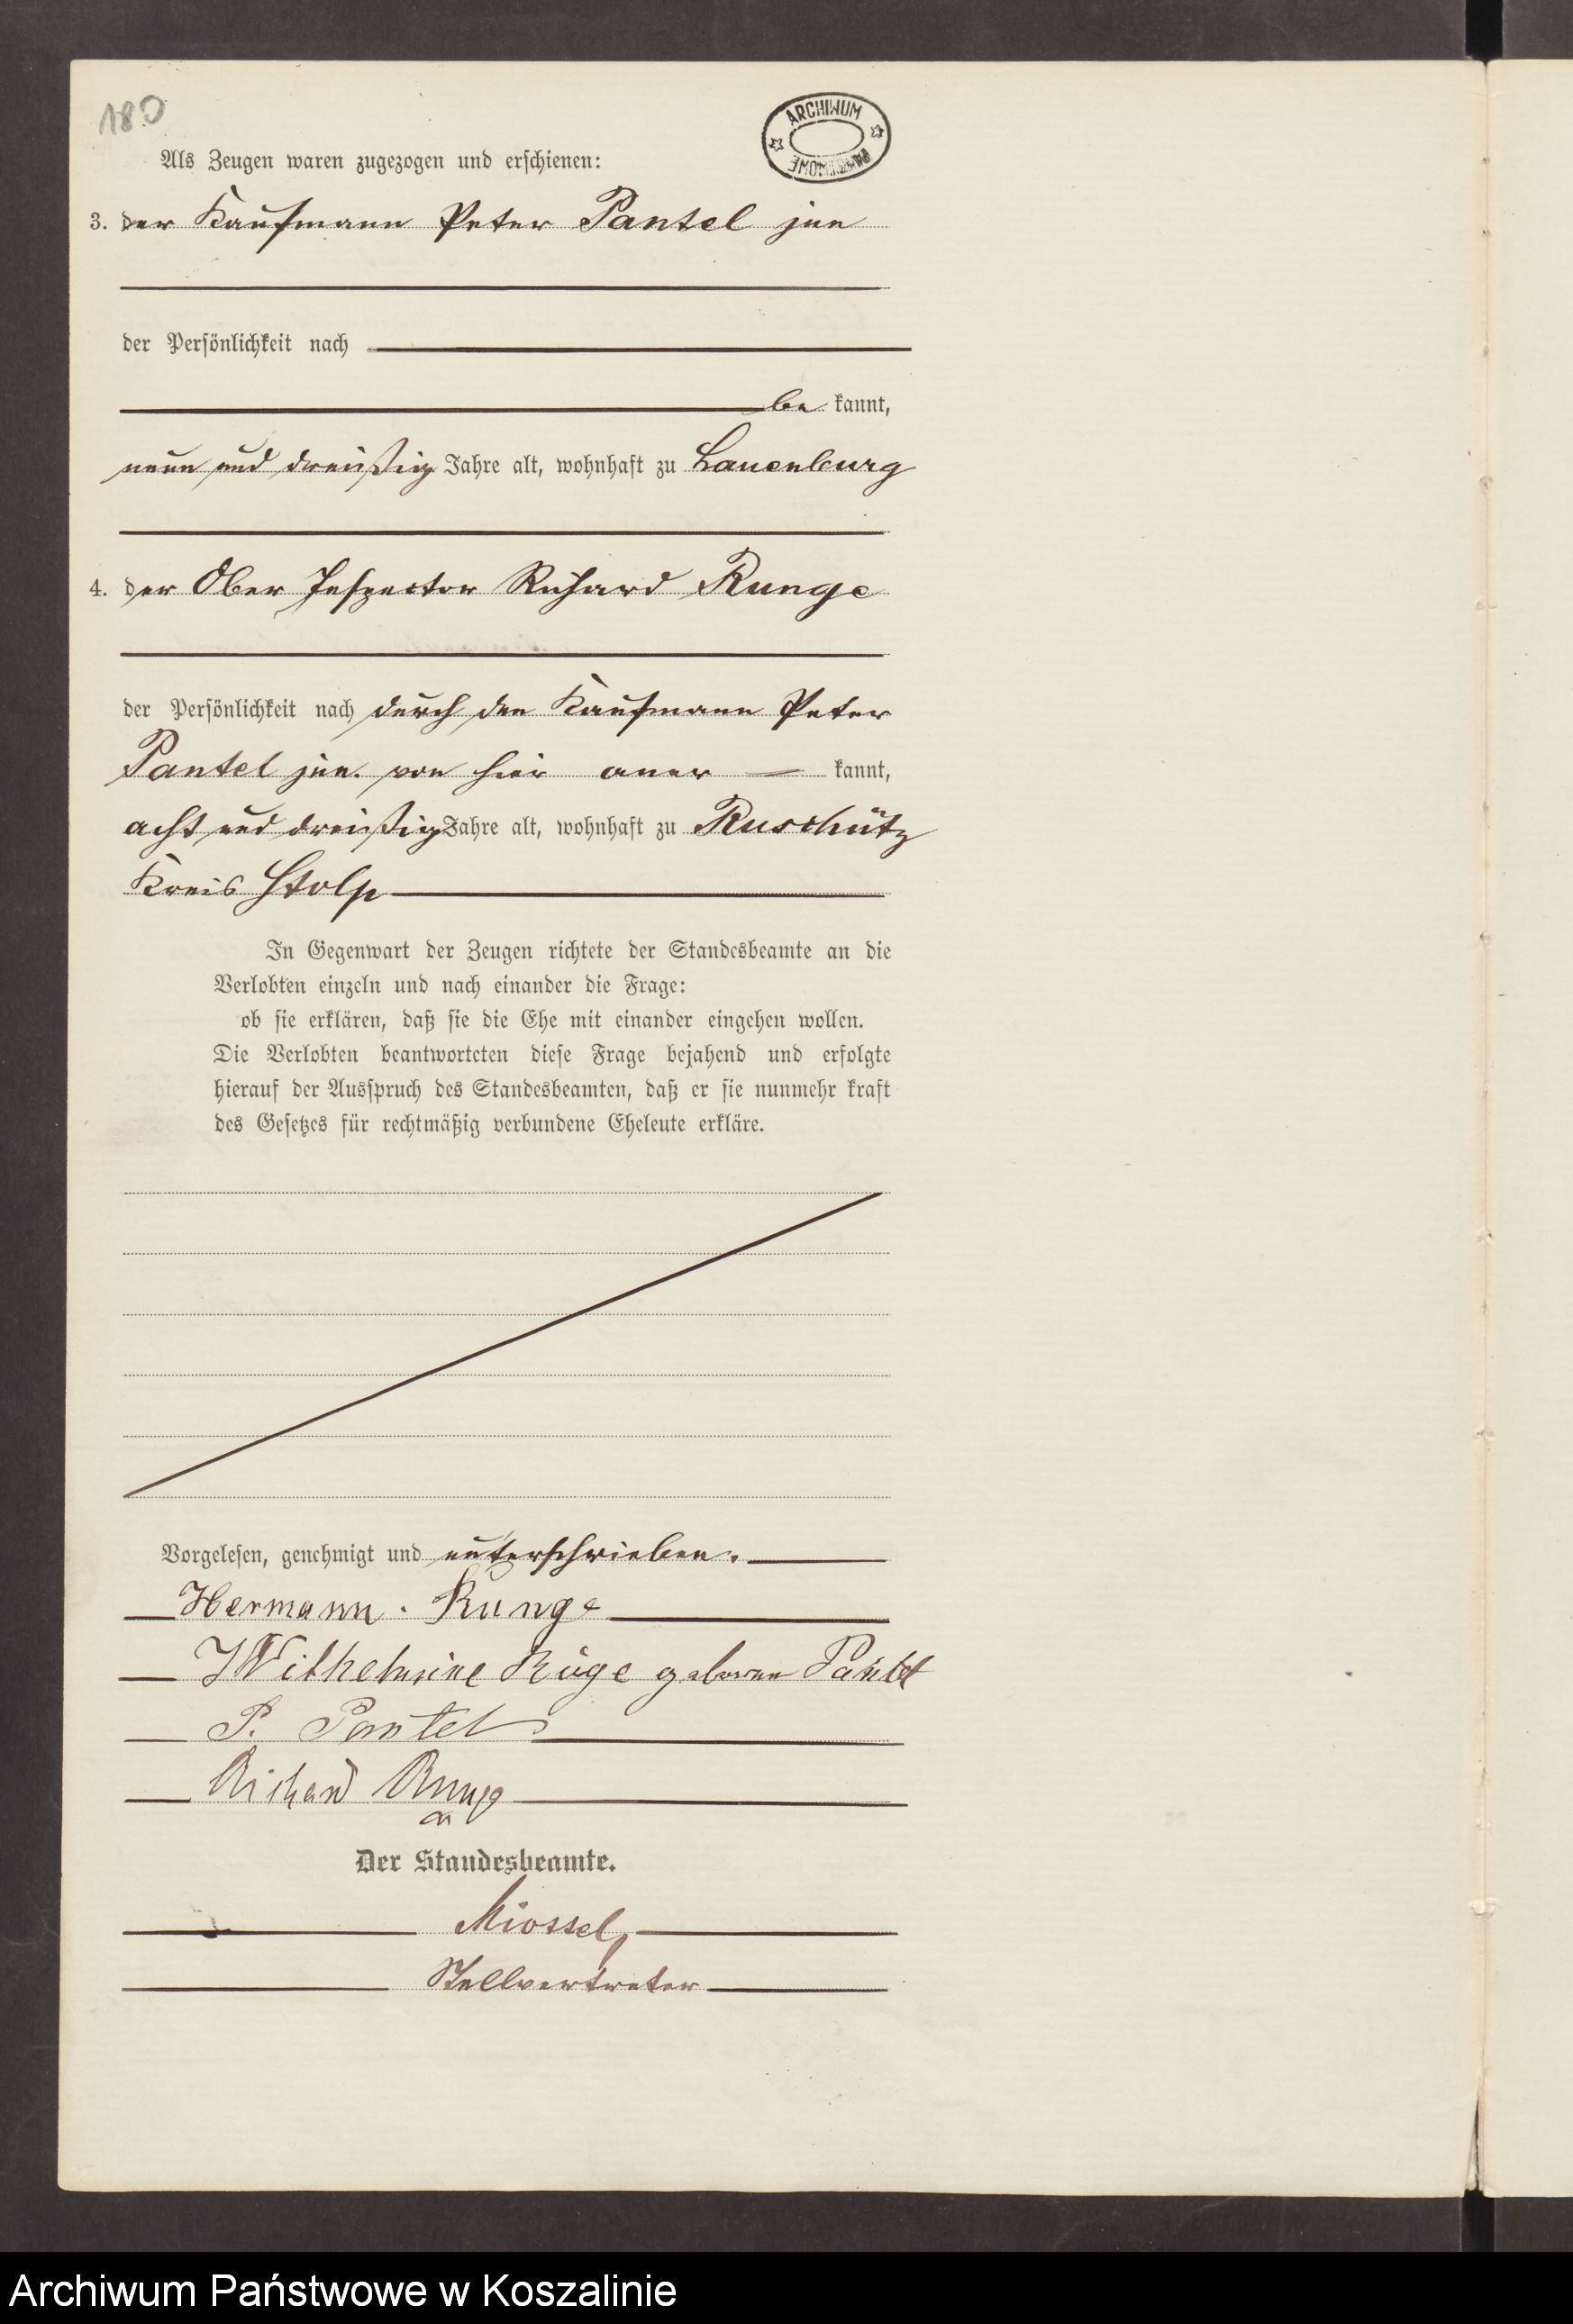 180
ARCHIWUM
PAŃSTWOWE
Als Zeugen waren zugezogen und erschienen:
3. der Kaufmann Peter Pantel jun
der Persönlichkeit nach
be kannt,
neun und dreißig Jahre alt, wohnhaft zu Lauenburg
4. der Ober Inspector Richard Runge
der Persönlichkeit nach durch den Kaufmann Peter
Pantel jun. von hier aner kannt,
acht und dreißig Jahre alt, wohnhaft zu Ruschütz
Kreis Stolp
In Gegenwart der Zeugen richtete der Standesbeamte an die
Verlobten einzeln und nach einander die Frage:
ob sie erklären, daß sie die Ehe mit einander eingehen wollen.
Die Verlobten beantworteten diese Frage bejahend und erfolgte
hierauf der Ausspruch des Standesbeamten, daß er sie nunmehr kraft
des Gesetzes für rechtmäßig verbundene Eheleute erkläre.
Vorgelesen, genehmigt und unterschrieben.
Hermann. Runge
Wilhelmine Ruge geboren Pantel
P. Pantel
Richard Runge
Der Standesbeamte.
Miossel,
Stellvertreter
Archiwum Państwowe w Koszalinie